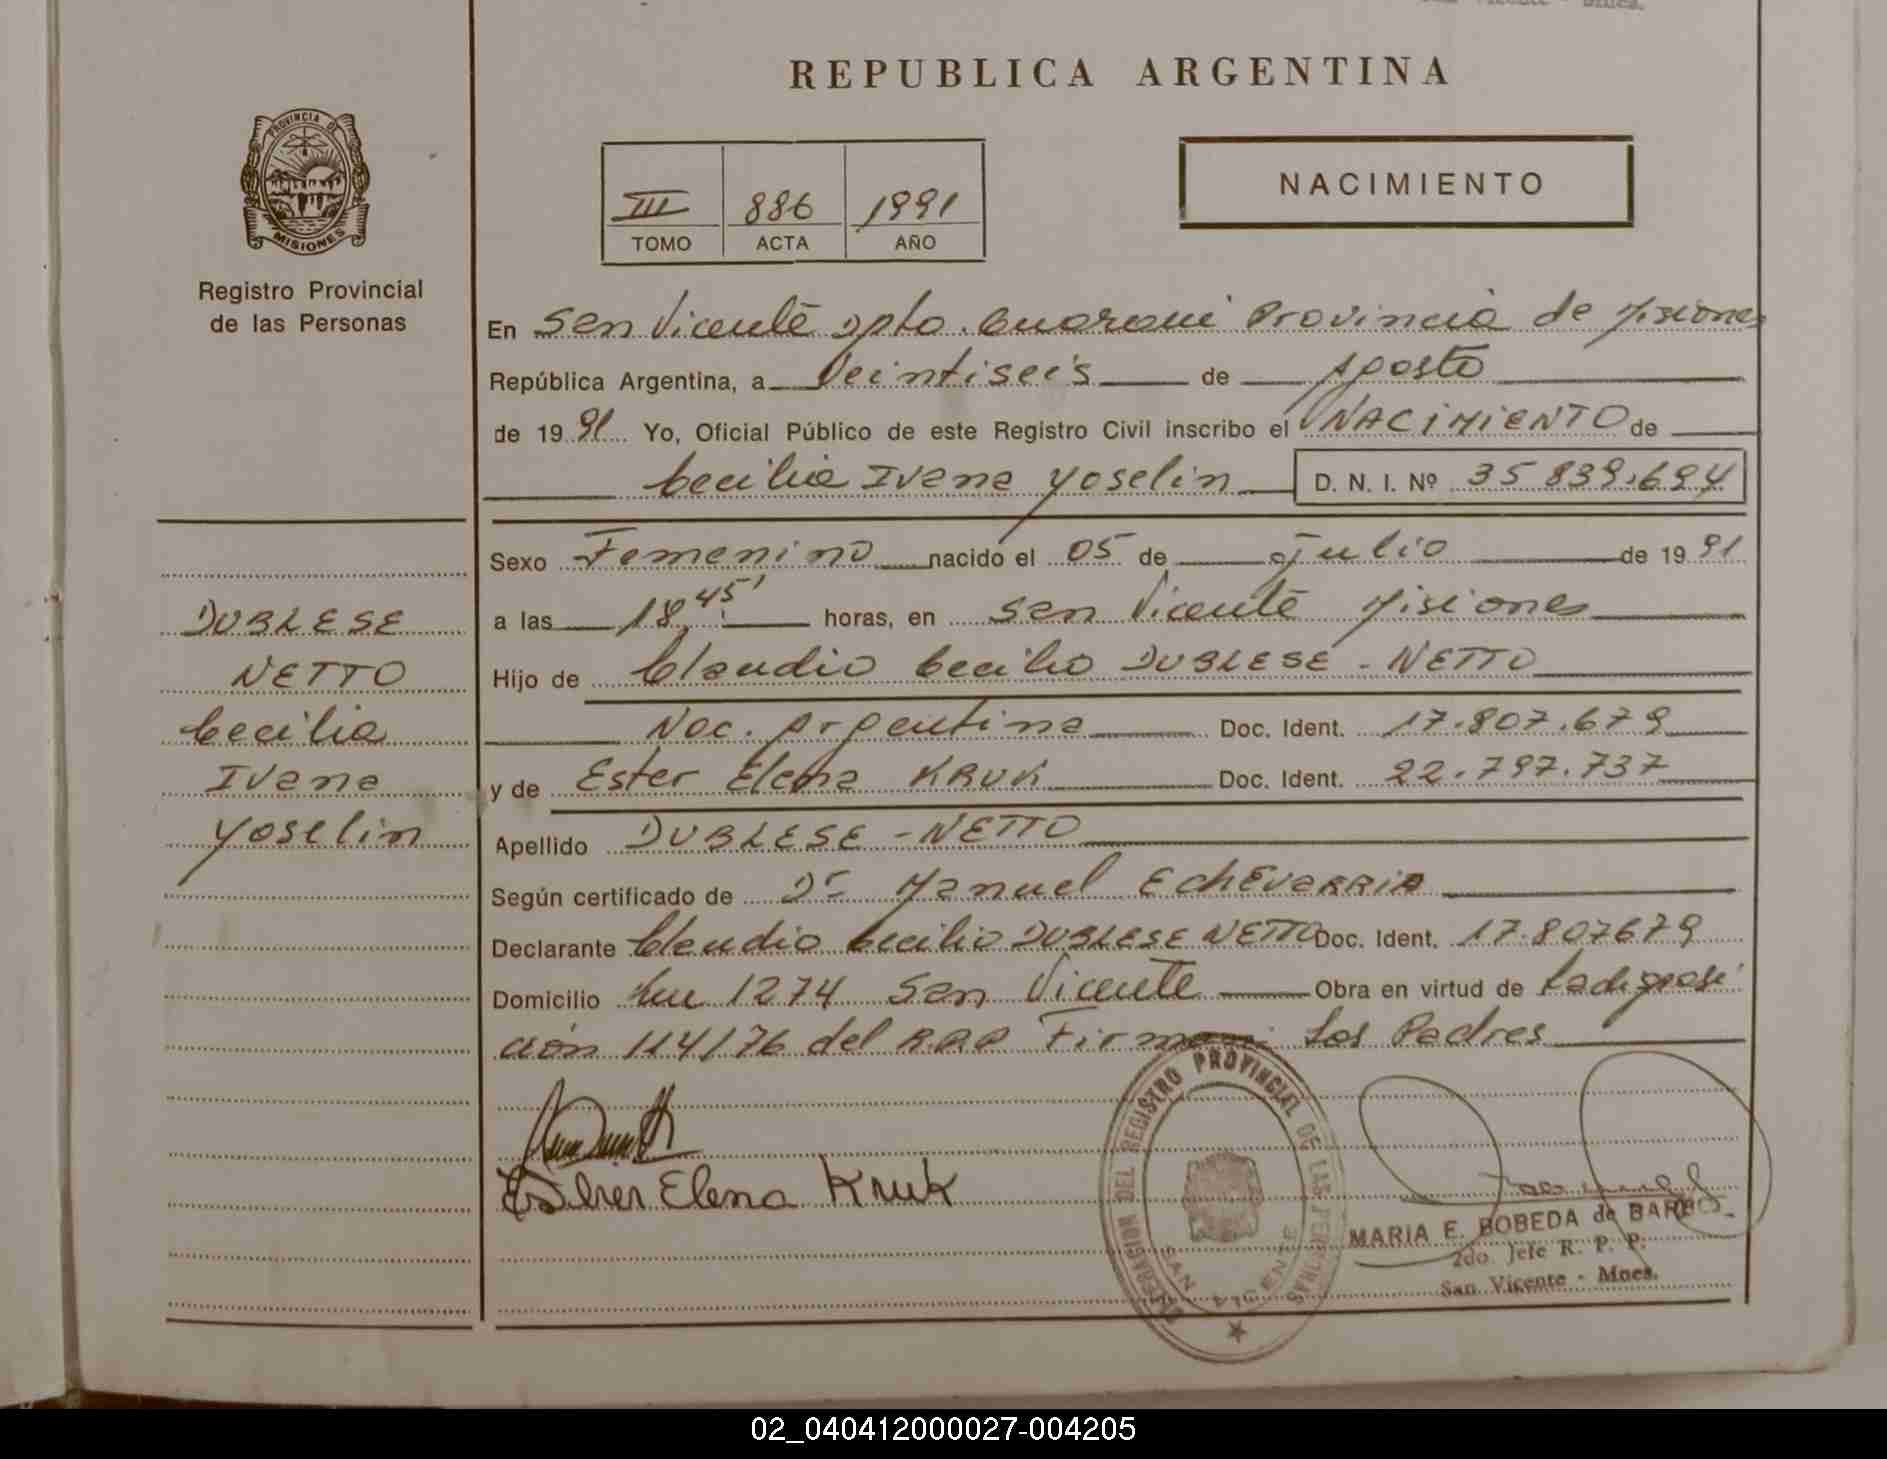 REPUBLICA ARGENTINA
PROVINCIA DE
MISIONES
Registro Provincial
de las Personas
III 886 1991
TOMO ACTA AÑO
NACIMIENTO
En San Vicente Dpto. Guarani Provincia de Misiones
República Argentina, a Veintiseis de Agosto
de 1991 Yo, Oficial Público de este Registro Civil inscribo el NACIMIENTO de
Cecilia Ivana Yoselin D. N. I. Nº 35 839.694
Sexo Femenino nacido el 05 de Julio de 1991
a las 18 45' horas, en San Vicente Misiones
Hijo de Claudio Cecilio DUBLESE - NETTO
Nac. Argentina Doc. Ident. 17.807.679
y de Ester Elena KRUK Doc. Ident. 22.797.737
Apellido DUBLESE - NETTO
Según certificado de Dr Manuel EchEVARRIA
Declarante Claudio Cecilio DUBLESE NETTO Doc. Ident. 17.807679
Domicilio 1274 San Vicente Obra en virtud de
ción 114/76 del R.P.P Firman: Los Padres
DUBLESE
NETTO
Cecilia
Ivana
Yoselin
Esther Elena Kruk
DELEGACION DEL REGISTRO PROVINCIAL DE LAS PERSONAS
SAN VICENTE
MARIA E. BOBEDA de BARBOS
2do. Jefe R. P. P.
San Vicente - Mnes.
02_040412000027-004205